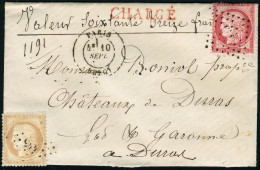 Valeur Soixante Treize fran
CHARGÉ
1191
PARIS
10
SEPT.
Monsieur Boniol prop.re
Châteaux de Duras
Lot et Garonne
a Duras